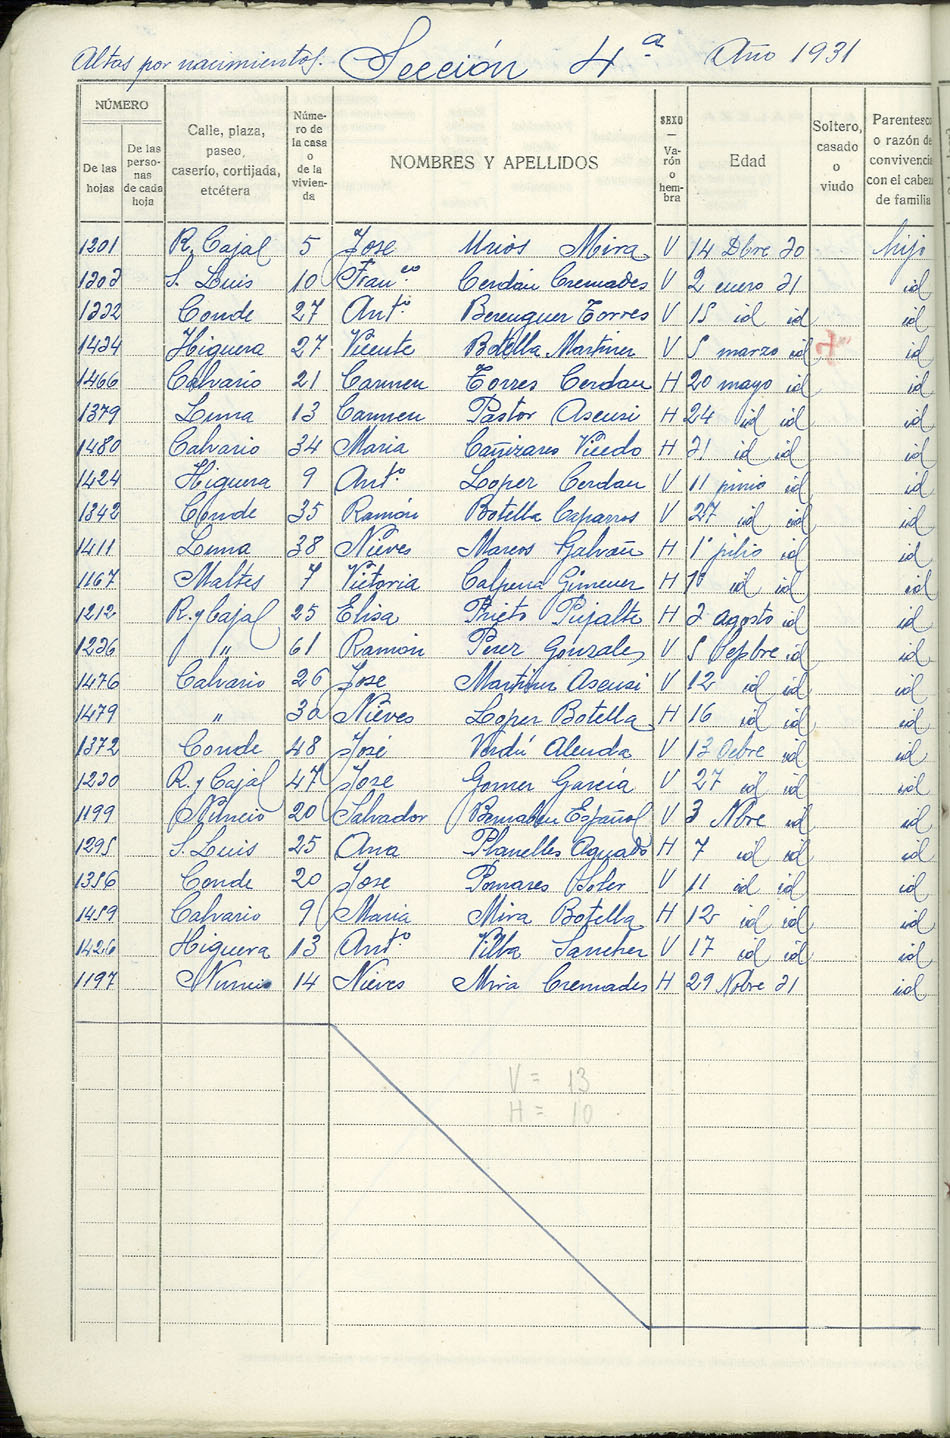 Altas por nacimientos. Sección 4ª Año 1931
NÚMERO
De las hojas
De las personas de cada hoja
Calle, plaza, paseo, caserío, cortijada, etcétera
Número de la casa o de la vivienda
NOMBRES Y APELLIDOS
SEXO — Varón o hembra
Edad
Soltero, casado o viudo
Parentesco o razón de convivencia con el cabeza de familia
1201 R. Cajal 5 Jose Urios Mira V 14 Dbre 30 hijo
1303 S. Luis 10 Franco Cerdán Cremades V 2 enero 31 id
1332 Conde 27 Antº Berenguer Torres V 15 id id id
1434 Higuera 27 Vicente Botella Martinez V 5 marzo id id
1466 Calvario 21 Carmen Torres Cerdan H 20 mayo id id
1379 Luna 13 Carmen Pastor Asensi H 24 id id id
1480 Calvario 34 Maria Cañizares Vicedo H 31 id id id
1424 Higuera 9 Antº Lopez Cerdan V 11 junio id id
1342 Conde 35 Ramón Botella Caparros V 27 id id id
1411 Luna 38 Nieves Marcos Galvañ H 1º julio id id
1167 Maltes 7 Victoria Calpena Gimenez H 1º id id id
1212 R. y Cajal 25 Elisa Prieto Pujalte H 2 agosto id id
1236 " 61 Ramón Perez Gonzales V 5 Sepbre id id
1476 Calvario 26 Jose Martinez Asensi V 12 id id id
1479 " 30 Nieves Lopez Botella H 16 id id id
1372 Conde 48 José Verdú Alenda V 13 Ocbre id id
1230 R. y Cajal 47 Jose Gomez García V 27 id id id
1199 Nuncio 20 Salvador Bernabeu Español V 3 Nbre id id
1295 S. Luis 25 Ana Planelles Aguado H 7 id id id
1356 Conde 20 Jose Pomares Soler V 11 id id id
1459 Calvario 9 Maria Mira Botella H 12 id id id
1426 Higuera 13 Antº Vilba Sanchez V 17 id id id
1197 Nuncio 14 Nieves Mira Cremades H 29 Nobre 31 id
V = 13
H = 10